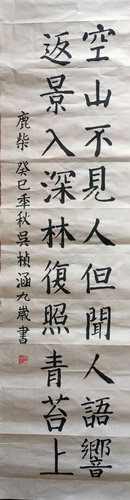 空山不見人但聞人語響
返景入深林復照青苔上
鹿柴 癸巳年秋吳楨涵九歲書